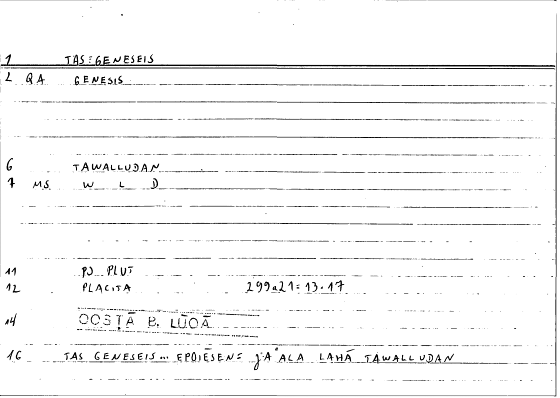 1 TAS:GENESEIS
2 QA GENESIS
6 TAWALLUDAN
7 MS W L D
11 PJ PLUT
12 PLACITA 299a21=13.17
14 QOSṬĀ B. LŪQĀ
16 TAS GENESEIS... EPOIĒSEN= ǦAʿALA LAHĀ TAWALLUDAN